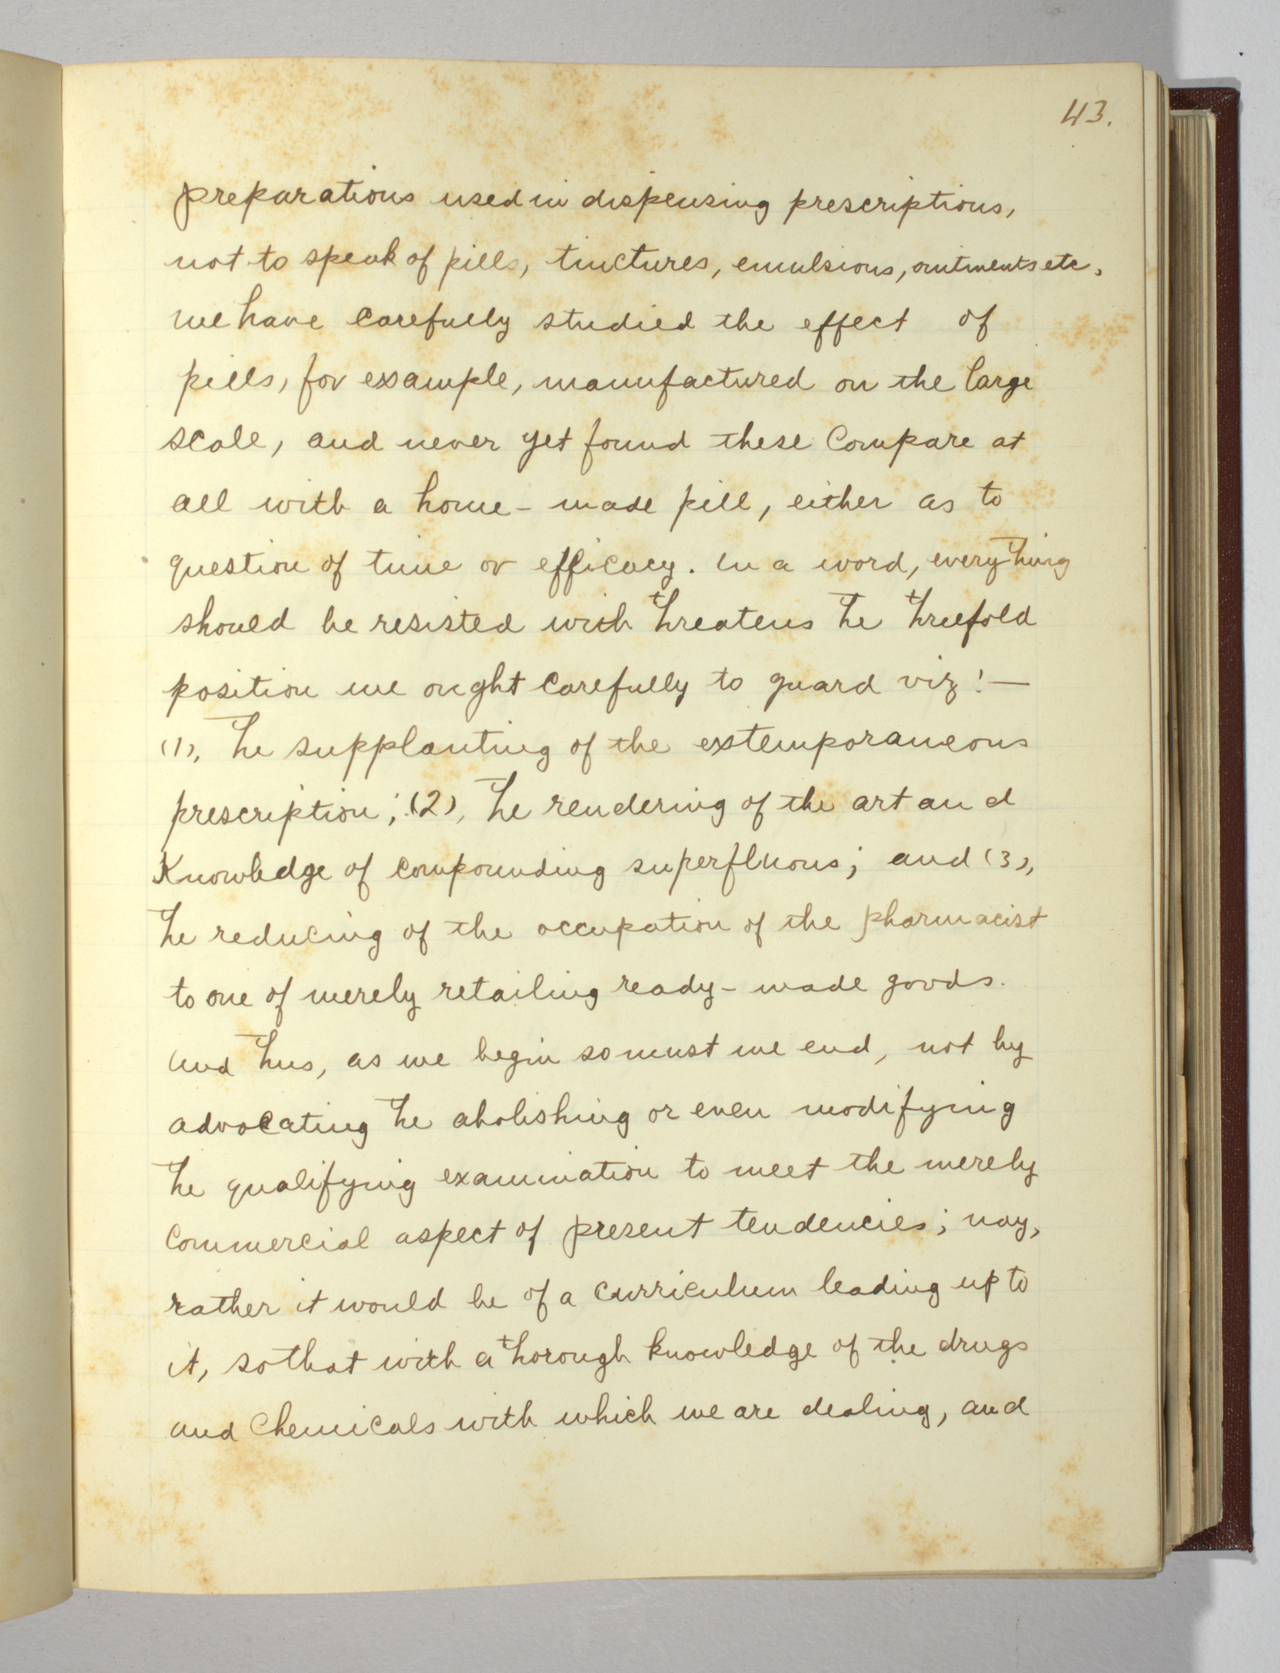 43.
preparations used in dispensing prescriptions,
not to speak of pills, tinctures, emulsions, ointments etc.
We have carefully studied the effect of
pills, for example, manufactured on the large
scale, and never yet found these compare at
all with a home-made pill, either as to
question of time or efficacy. In a word, everything
should be resisted wich threatens the threefold
position we ought carefully to guard viz:—
(1), The supplanting of the extemporaneous
prescription; (2), the rendering of the art and
Knowledge of compounding superfluous; and (3),
the reducing of the occupation of the pharmacist
to one of merely retailing ready-made goods.
And thus, as we begin so must we end, not by
advocating the abolishing or even modifying
the qualifying examination to meet the merely
commercial aspect of present tendencies; nay,
rather it would be of a curriculum leading up to
it, so that with a thorough knowledge of the drugs
and chemicals with which we are dealing, and